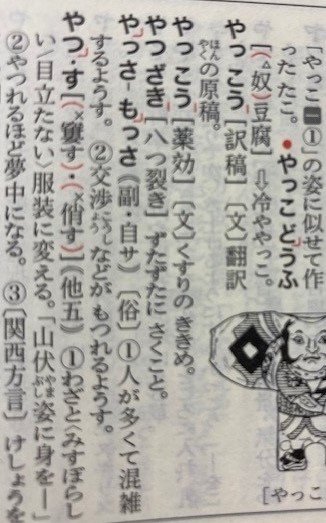 「やっこ■①」の姿に似せて作
ったたこ。●やっこどうふ
[(△奴)豆腐]⇩冷ややっこ。
やっこう[訳稿]〔文〕翻訳
の原稿。
やっこう[薬効]〔文〕くすりのききめ。
やつざき[八つ裂き]ずたずたにさくこと。
やっさもっさ(副・自サ)〔俗〕①人が多くて混雑
するようす。②交渉などがもつれるようす。
やつ・す[(×窶す)・(×俏す)](他五)①わざと〈みすぼらし
い/目立たない〉服装に変える。「山伏姿に身を―」
②やつれるほど夢中になる。③〔関西方言〕けしょうを
[やっこ